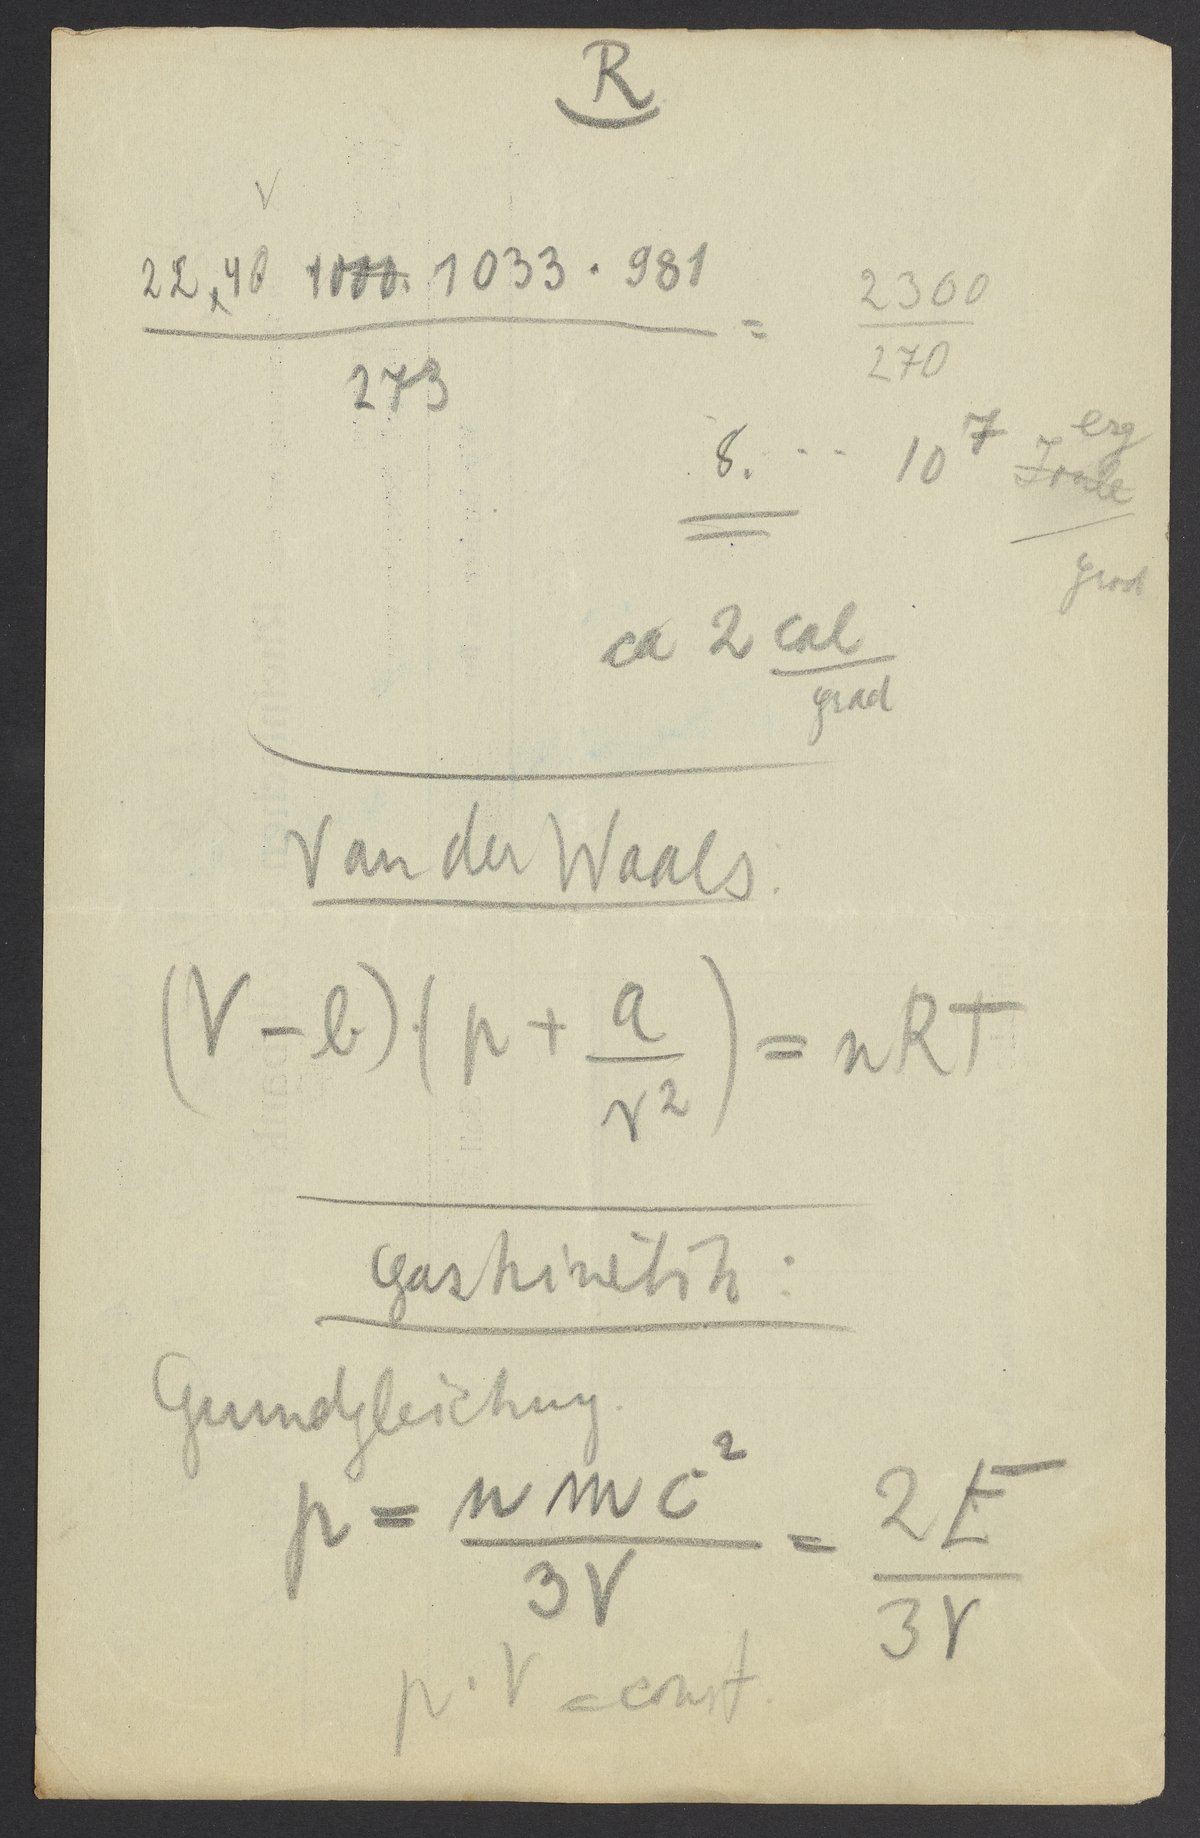 R
V
22,40 1000. 1033 · 981 / 273 = 2300 / 270
8. ... 10^7 erg Joule / grad
ca 2 cal / grad
Van der Waals:
(V - b) · (p + a / v^2) = nRT
Gaskinetik:
Grundgleichung.
p = n m c^2 / 3V = 2E / 3V
p · V = const.